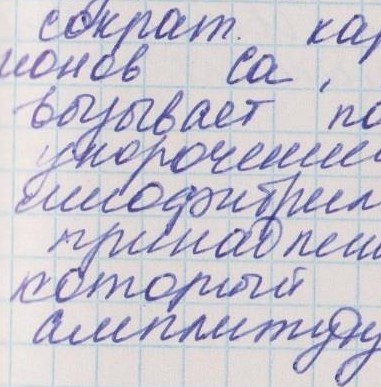 сократ. кар
ионов Ca,
вызывает по
укорочение
миофибрил
принадлеж
который
амплитуду